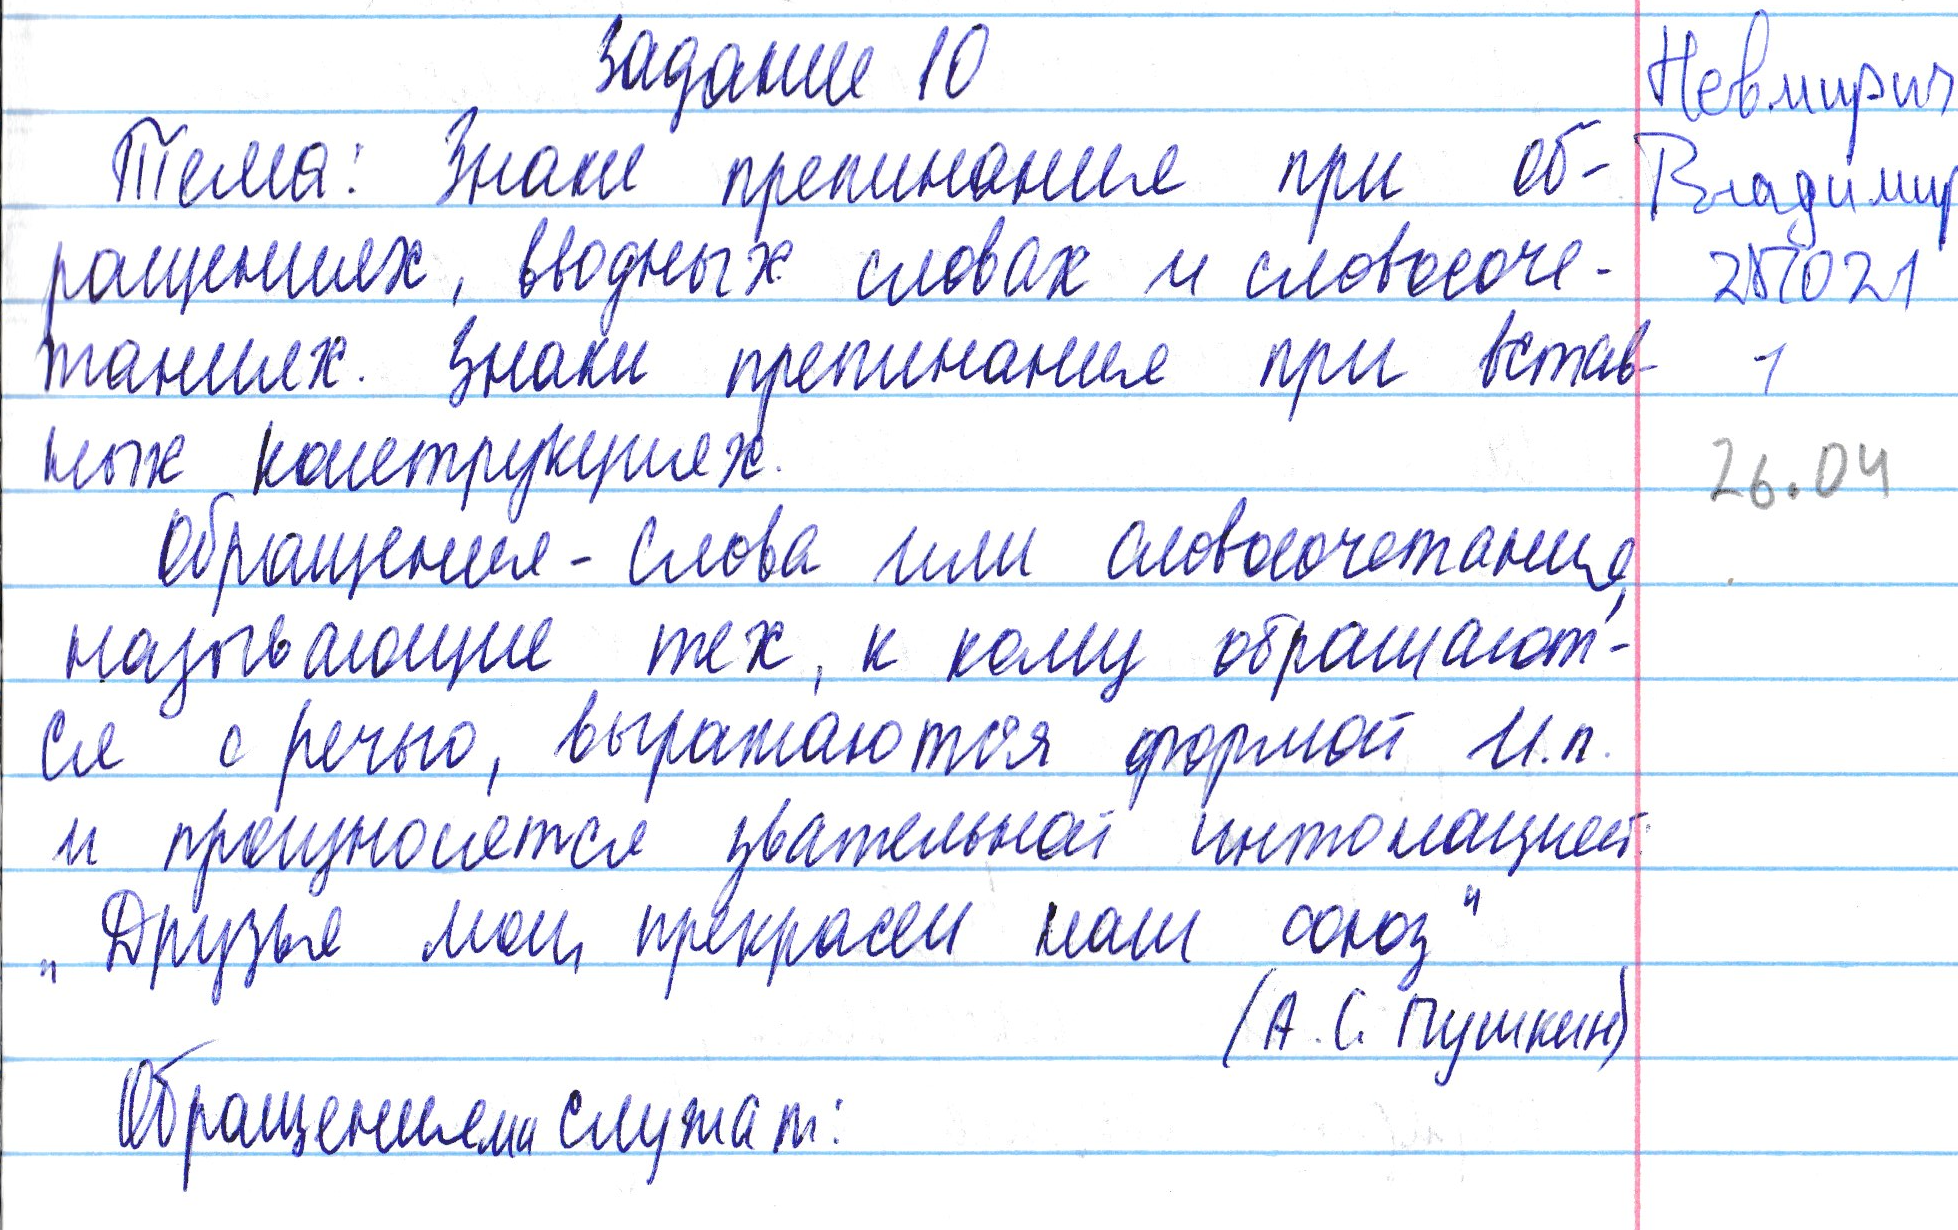 Задание 10
Тема: Знаки препинания при об-
ращениях, вводных словах и словосоче-
таниях. Знаки препинания при встав-
ных конструкциях.
Обращения - слова или словосочетания,
называющие тех, к кому обращают-
ся с речью, выражаются формой И.п.
и произносятся звательной интонацией:
„Друзья мои, прекрасен наш союз“
(А. С. Пушкин)
Обращениями служат:
Невмирич
Владимир
1
26.04